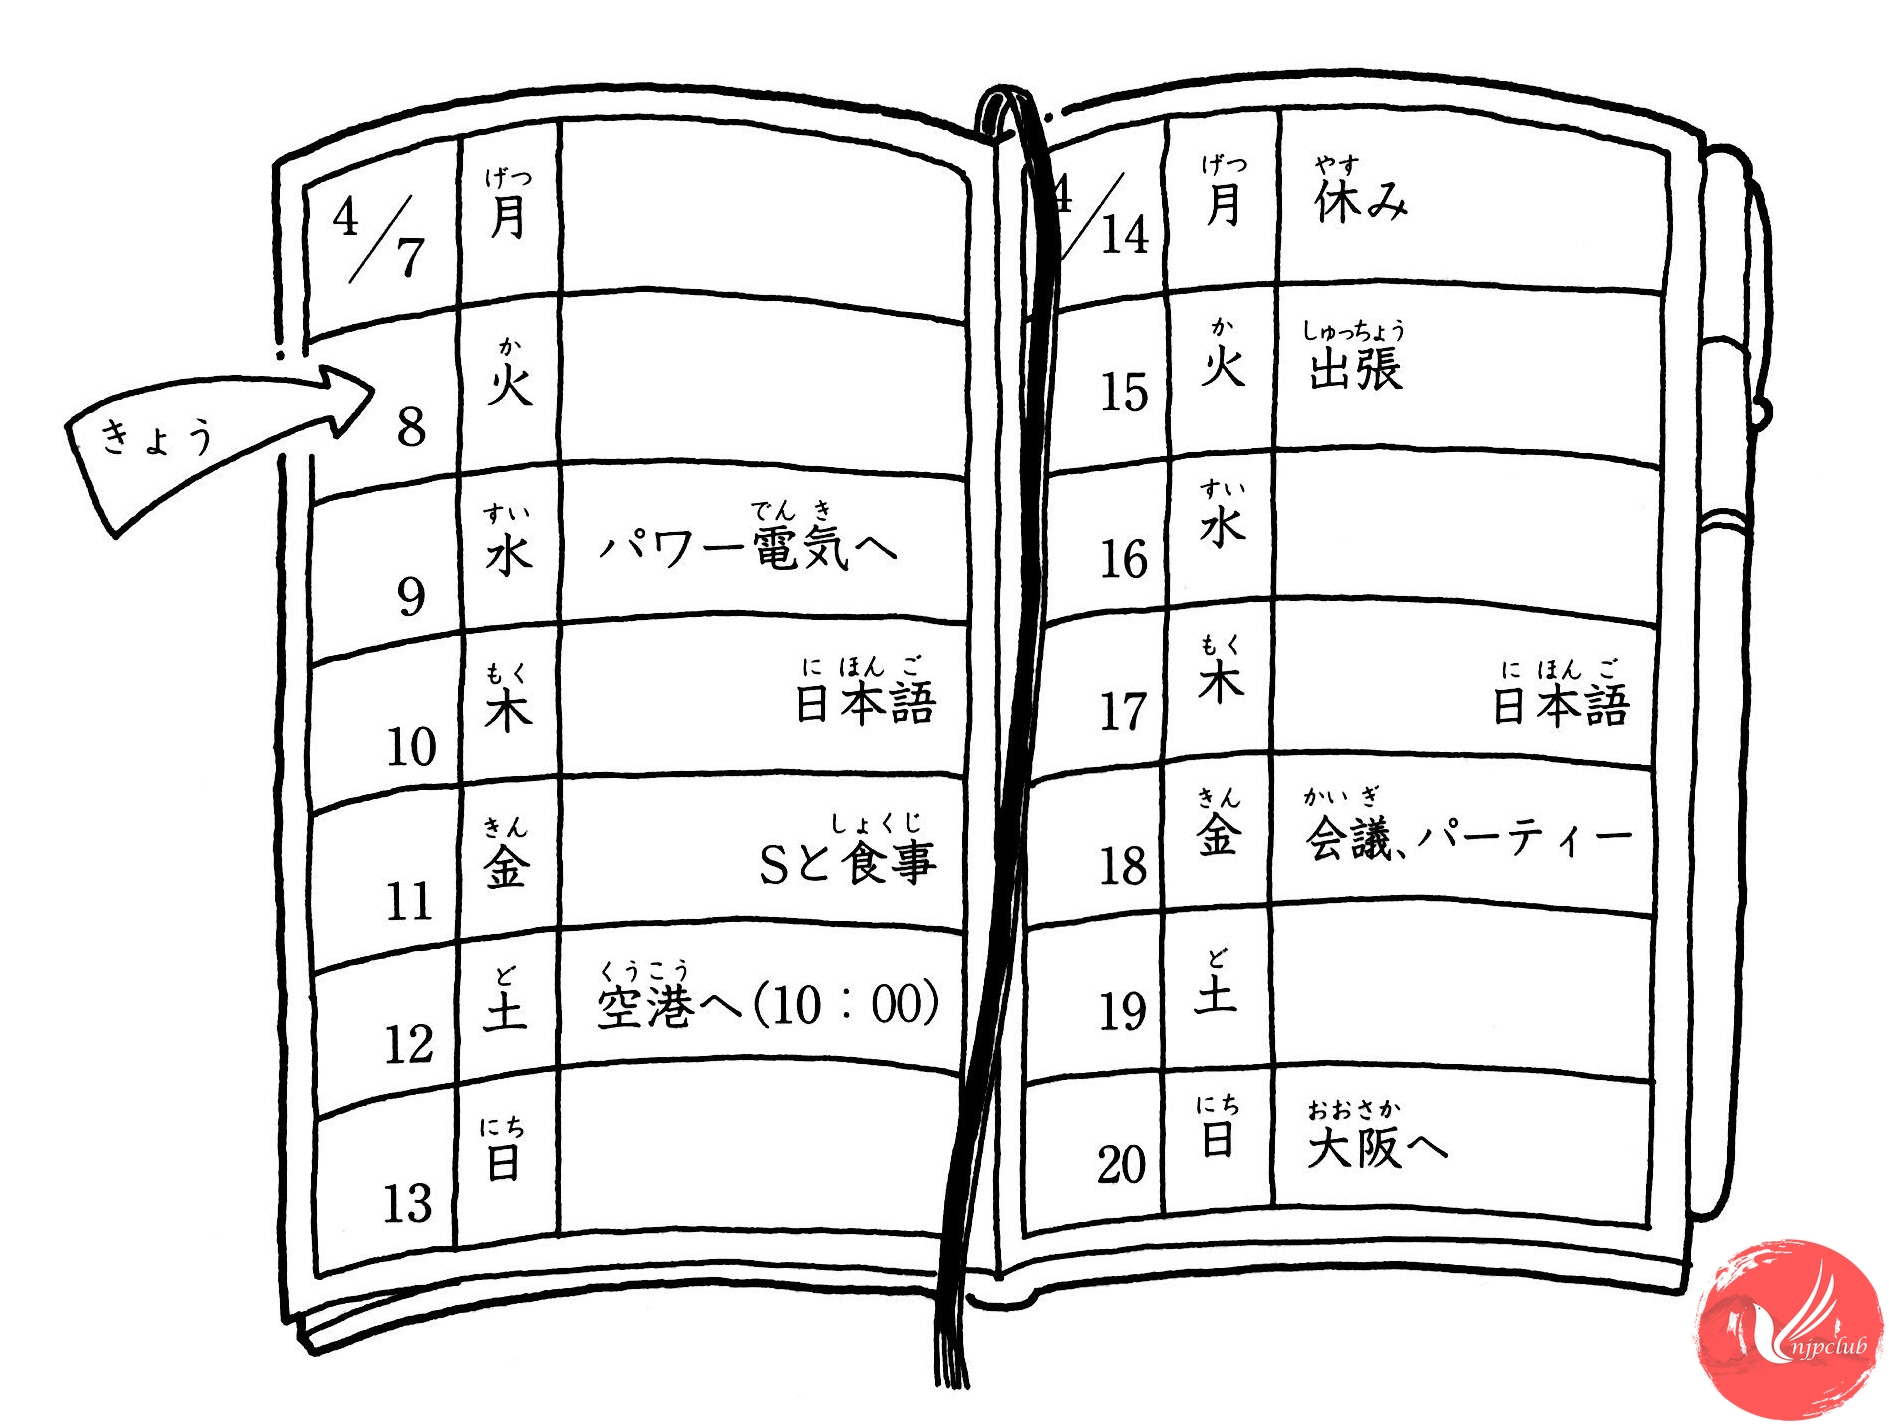 げつ
4/7 月
きょう
か
8 火
すい でん き
9 水 パワー電気へ
もく に ほん ご
10 木 日本語
きん しょくじ
11 金 Sと食事
ど くうこう
12 土 空港へ(10:00)
にち
13 日
げつ やす
4/14 月 休み
か しゅっちょう
15 火 出張
すい
16 水
もく に ほん ご
17 木 日本語
きん かい ぎ
18 金 会議、パーティー
ど
19 土
にち おおさか
20 日 大阪へ
njpclub